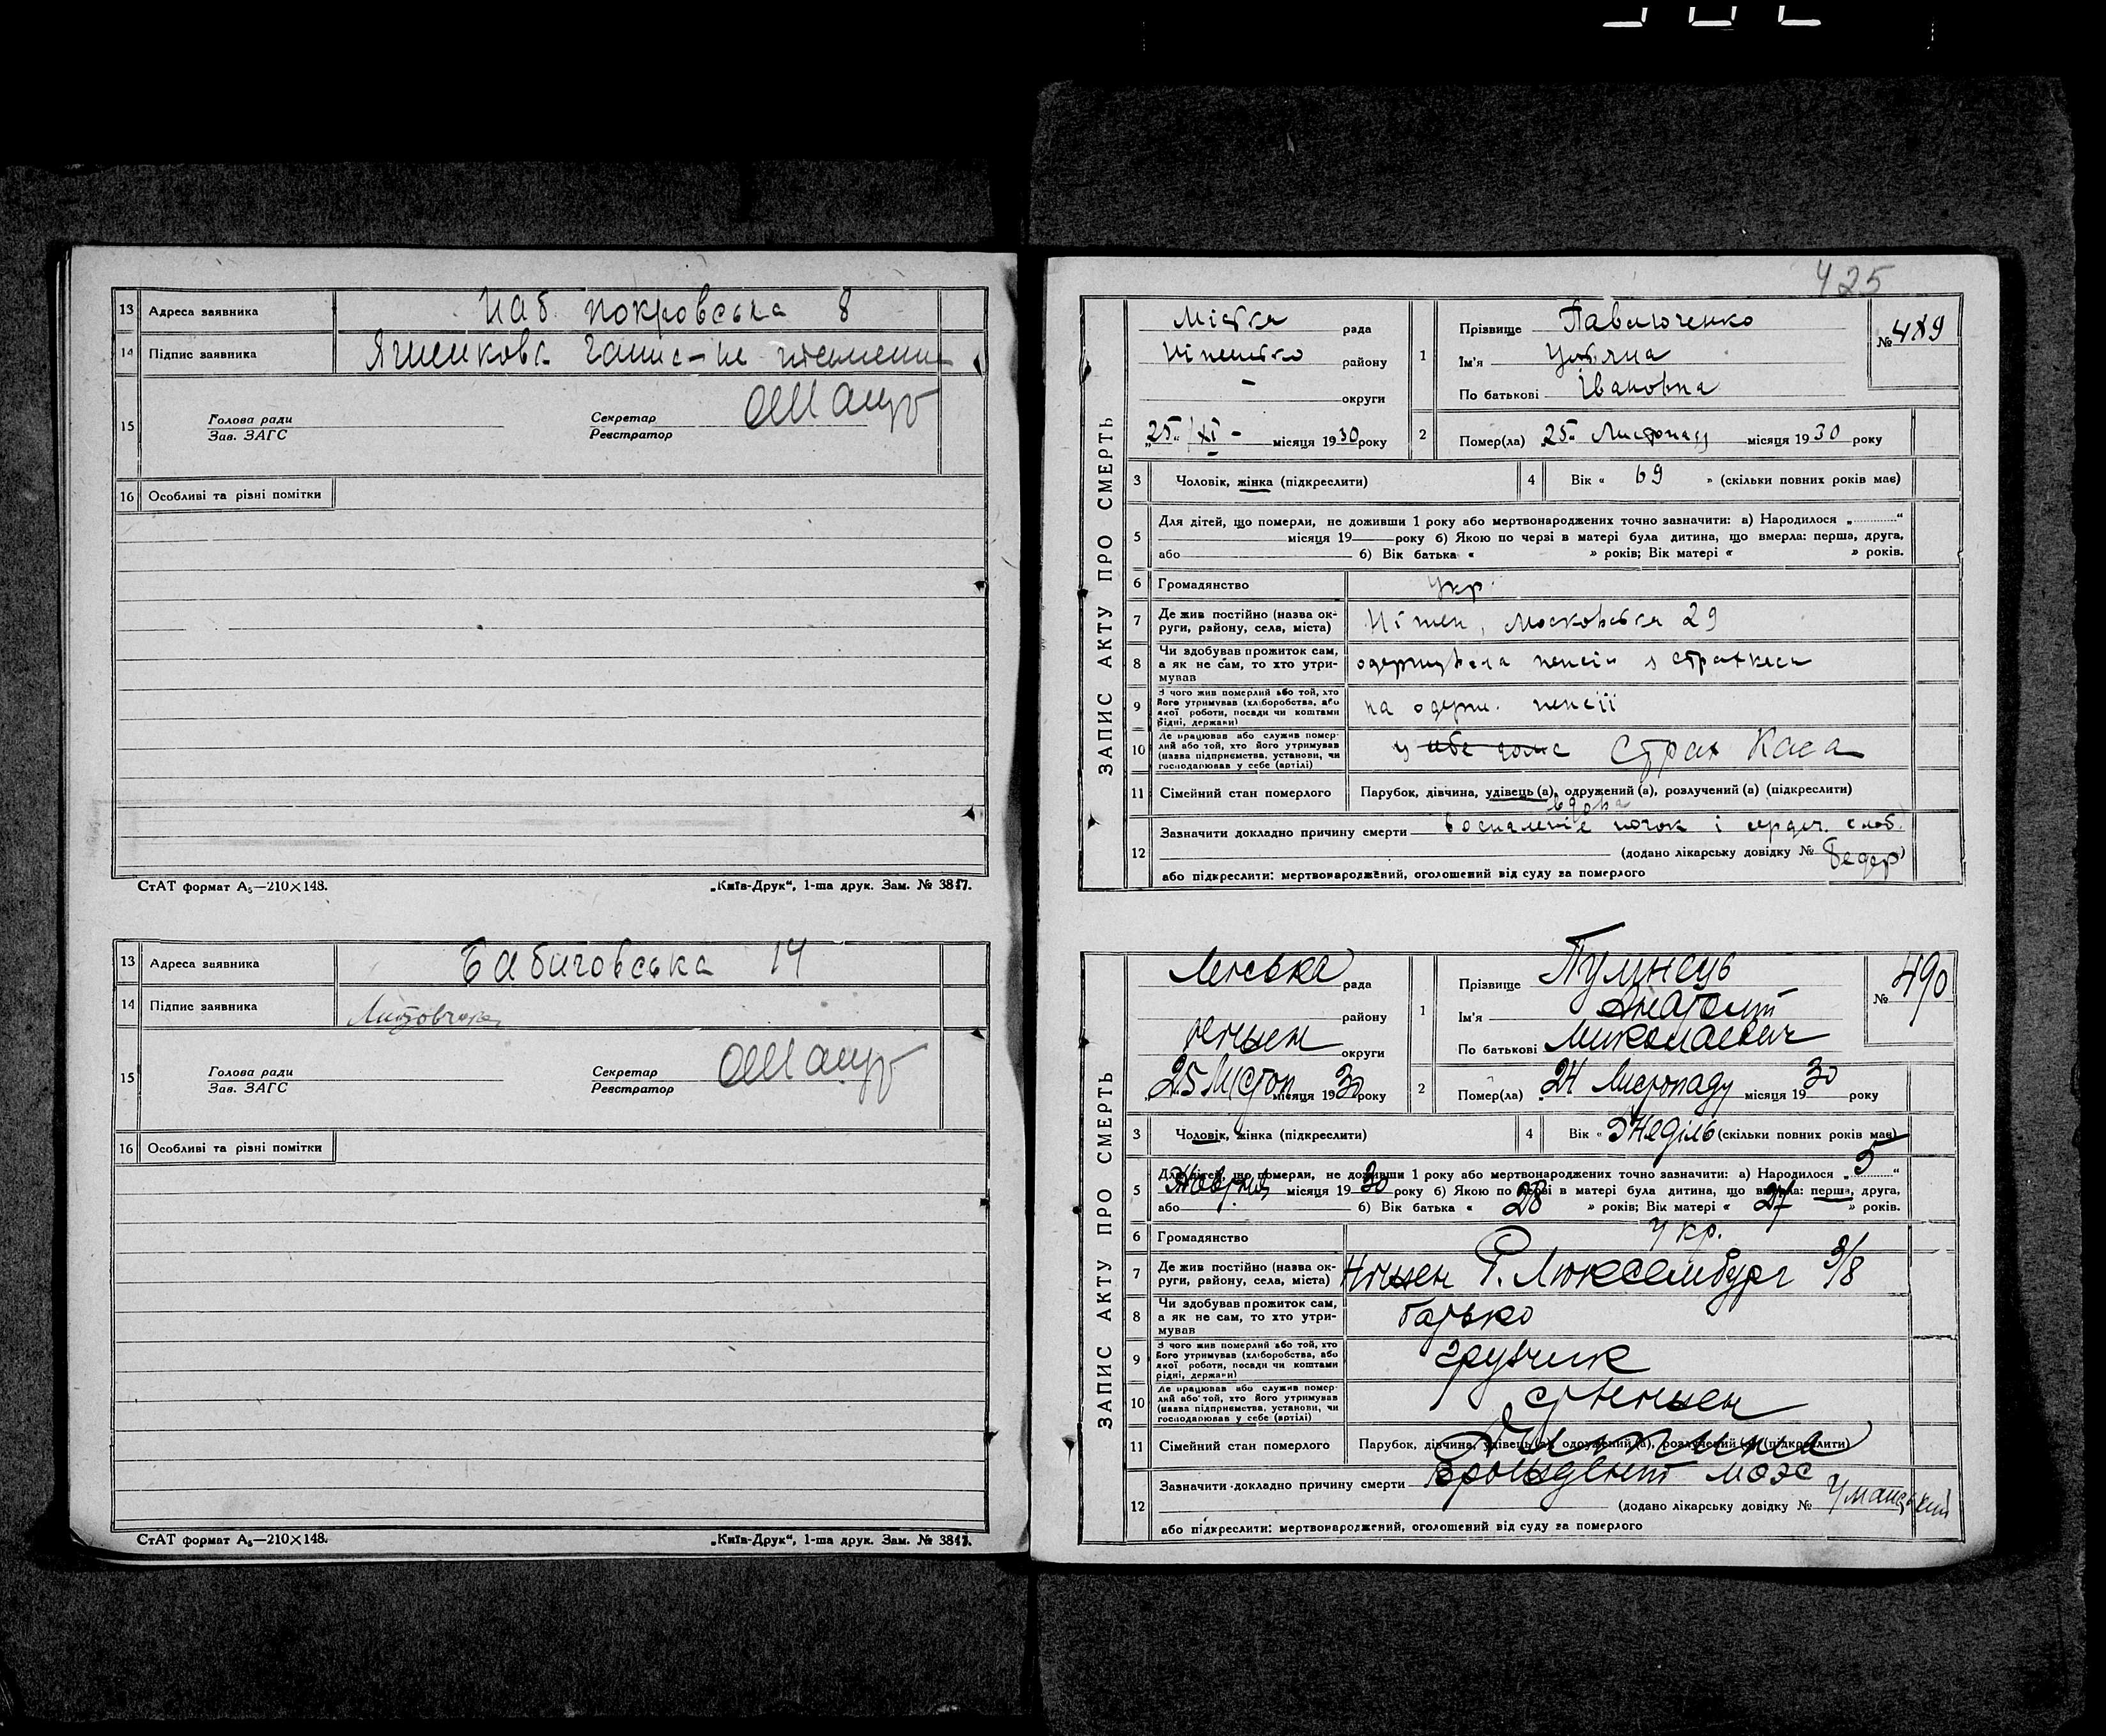 13 Адреса заявника Наб. покровська 8
14 Підпис заявника
15 Голова ради Секретар
Зав. ЗАГС Реєстратор
16 Особливі та різні помітки
СтАТ формат А₅—210×148. „Київ-Друк“, 1-ша друк. Зам. № 3817.
13 Адреса заявника 14
14 Підпис заявника
15 Голова ради Секретар
Зав. ЗАГС Реєстратор
16 Особливі та різні помітки
СтАТ формат А₅—210×148. „Київ-Друк“, 1-ша друк. Зам. № 3817.
425
ЗАПИС АКТУ ПРО СМЕРТЬ
Міська рада
району
– округи
„25“ XI – місяця 1930 року
1 Прізвище Павлюченко
Ім'я Уляна
По батькові Івановна
№ 489
2 Помер(ла) 25 Листопад місяця 1930 року
3 Чоловік, жінка (підкреслити)
4 Вік « 69 » (скільки повних років має)
5 Для дітей, що померли, не доживши 1 року або мертвонароджених точно зазначити: а) Народилося „ “
місяця 19 року б) Якою по черзі в матері була дитина, що вмерла: перша, друга,
або б) Вік батька « » років; Вік матері « » років.
6 Громадянство Укр.
7 Де жив постійно (назва округи, району, села, міста) Ніжен, Московська 29
8 Чи здобував прожиток сам, а як не сам, то хто утримував одержувала пенсію з страхкаси
9 З чого жив померлий або той, хто його утримував (хліборобства, або якої роботи, посади чи коштами рідні, держави) на одерж. пенсії
10 Де працював або служив померлий або той, хто його утримував (назва підприємства, установи, чи господарював у себе (артілі) Страх Каса
11 Сімейний стан померлого Парубок, дівчина, удівець (а), одружений (а), розлучений (а) (підкреслити)
вдова
12 Зазначити докладно причину смерти воспаленіе почок і сердеч. слаб.
(додано лікарську довідку № )
або підкреслити: мертвонароджений, оголошений від суду за померлого
ЗАПИС АКТУ ПРО СМЕРТЬ
рада
району
Ніжен округи
25 Листоп місяця 1930 року
1 Прізвище
Ім'я Анатолій
По батькові Миколаєвич
№ 490
2 Помер(ла) 24 Листопаду місяця 1930 року
3 Чоловік, жінка (підкреслити)
4 Вік « неділь (скільки повних років має)
5 Для дітей, що померли, не доживши 1 року або мертвонароджених точно зазначити: а) Народилося „ 5 “
Жовтня місяця 1930 року б) Якою по черзі в матері була дитина, що вмерла: перша, друга,
або б) Вік батька « 28 » років; Вік матері « 27 » років.
6 Громадянство Укр.
7 Де жив постійно (назва округи, району, села, міста) Ніжен Р. Люксембург 9/8
8 Чи здобував прожиток сам, а як не сам, то хто утримував батько
9 З чого жив померлий або той, хто його утримував (хліборобства, або якої роботи, посади чи коштами рідні, держави) грузчик
10 Де працював або служив померлий або той, хто його утримував (назва підприємства, установи, чи господарював у себе (артілі) ст Ніжен
11 Сімейний стан померлого Парубок, дівчина, удівець (а), одружений (а), розлучений (а) (підкреслити)
Дитина
12 Зазначити докладно причину смерти
(додано лікарську довідку № Уманський
або підкреслити: мертвонароджений, оголошений від суду за померлого